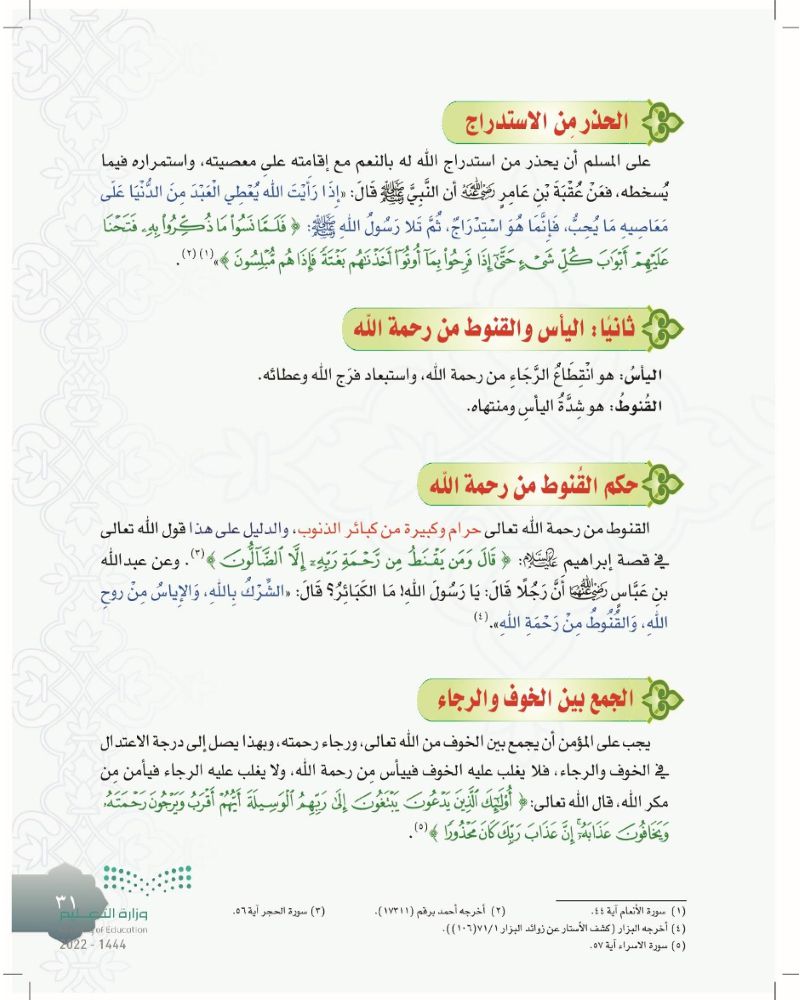 الحذر مِن الاستدراج
على المسلم أن يحذر من استدراج الله له بالنعم مع إقامته على معصيته، واستمراره فيما
يُسخطه، فعَنْ عُقْبَةَ بْنِ عَامرٍ رضي الله عنه أن النَّبِيَّ ﷺ قَالَ: «إذَا رَأَيْتَ الله يُعْطِي الْعَبْدَ مِنَ الدُّنْيَا عَلَى
مَعَاصِيهِ مَا يُحِبُّ، فَإِنَّمَا هُوَ اسْتِدْرَاجٌ، ثُمَّ تَلا رَسُولُ اللهِ ﷺ: ﴿ فَلَمَّا نَسُوا۟ مَا ذُكِّرُوا۟ بِهِۦ فَتَحْنَا
عَلَيْهِمْ أَبْوَٰبَ كُلِّ شَىْءٍ حَتَّىٰٓ إِذَا فَرِحُوا۟ بِمَآ أُوتُوٓا۟ أَخَذْنَٰهُم بَغْتَةً فَإِذَا هُم مُّبْلِسُونَ ﴾»(١) (٢).
ثانيًا: اليأس والقنوط من رحمة الله
اليأسُ: هو انْقِطَاعُ الرَّجَاءِ من رحمة الله، واستبعاد فرَج الله وعطائه.
القُنوطُ: هو شِدَّةُ اليأسِ ومنتهاه.
حكم القُنوط من رحمة الله
القنوط من رحمة الله تعالى حرام وكبيرة من كبائر الذنوب، والدليل على هذا قول الله تعالى
في قصة إبراهيم عليه السلام: ﴿ قَالَ وَمَن يَقْنَطُ مِن رَّحْمَةِ رَبِّهِۦٓ إِلَّا ٱلضَّآلُّونَ ﴾(٣). وعن عبدالله
بنِ عَبَّاسٍ رضي الله عنهما أَنَّ رَجُلًا قَالَ: يَا رَسُولَ اللهِ! مَا الكَبَائِرُ؟ قَالَ: «الشِّرْكُ بِاللهِ، وَالإِياسُ مِنْ روحِ
اللهِ، وَالقُنُوطُ مِنْ رَحْمَةِ اللهِ».(٤)
الجمع بين الخوف والرجاء
يجب على المؤمن أن يجمع بين الخوف من الله تعالى، ورجاء رحمته، وبهذا يصل إلى درجة الاعتدال
في الخوف والرجاء، فلا يغلب عليه الخوف فييأس مِن رحمة الله، ولا يغلب عليه الرجاء فيأمن مِن
مكر الله، قال الله تعالى: ﴿ أُو۟لَٰٓئِكَ ٱلَّذِينَ يَدْعُونَ يَبْتَغُونَ إِلَىٰ رَبِّهِمُ ٱلْوَسِيلَةَ أَيُّهُمْ أَقْرَبُ وَيَرْجُونَ رَحْمَتَهُۥ
وَيَخَافُونَ عَذَابَهُۥٓ ۚ إِنَّ عَذَابَ رَبِّكَ كَانَ مَحْذُورًا ﴾(٥).
(١) سورة الأنعام آية ٤٤. (٢) أخرجه أحمد برقم (١٧٣١١). (٣) سورة الحجر آية ٥٦.
(٤) أخرجه البزار (كشف الأستار عن زوائد البزار ٧١/١(١٠٦)).
(٥) سورة الاسراء آية ٥٧.
٣١
وزارة التعليم
of Education
2022 - 1444